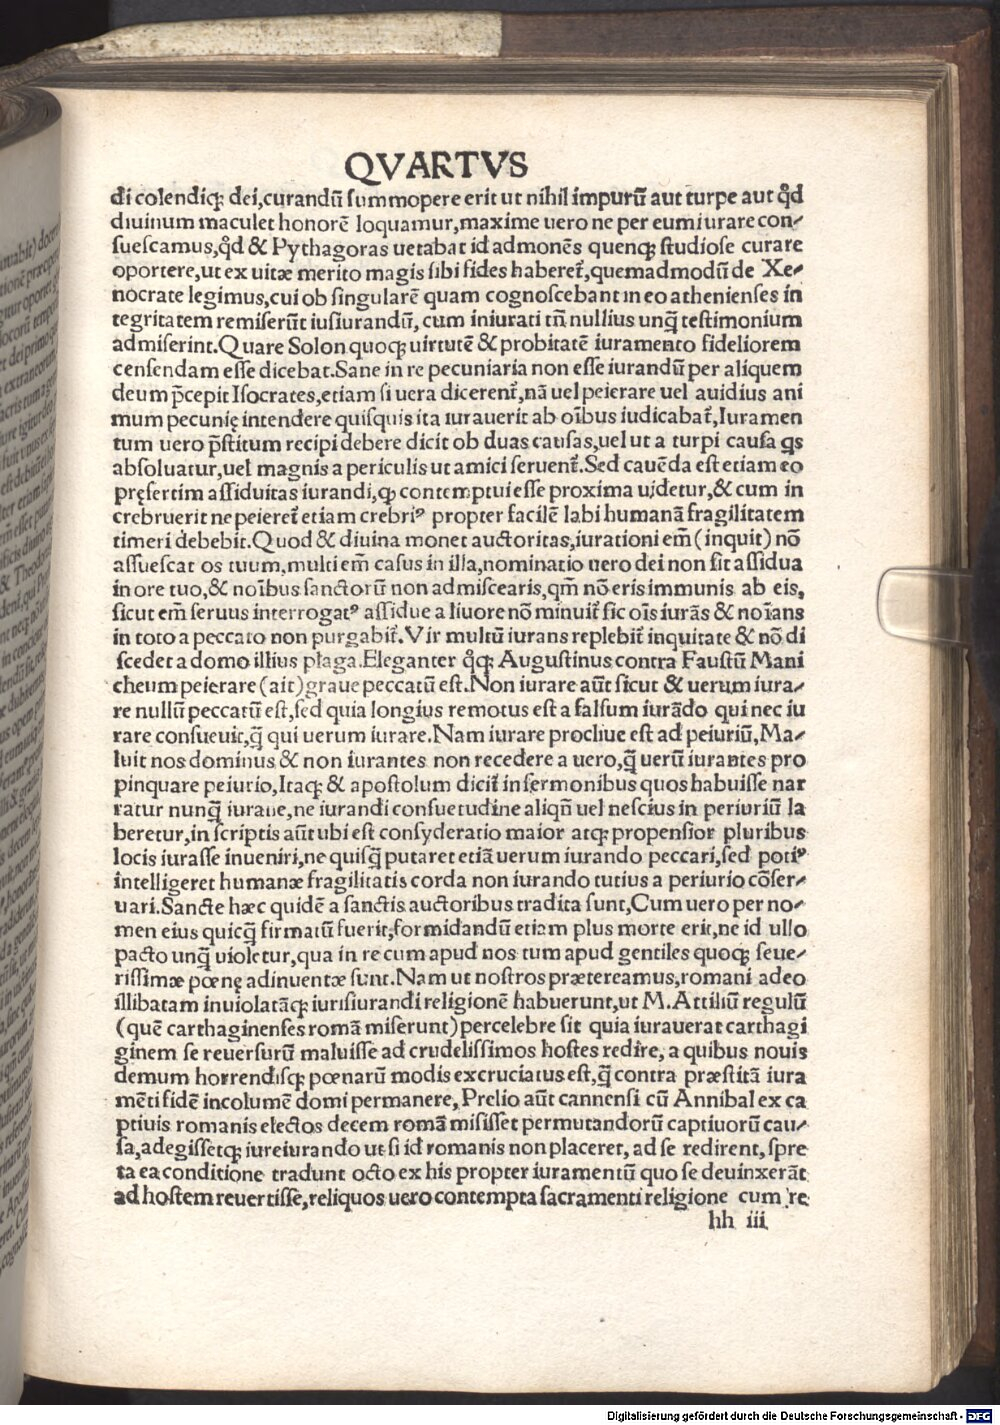 QVARTVS
di colendiq; dei,curandū summopere erit ut nihil impurū aut turpe aut qd̄
diuinum maculet honorē loquamur,maxime uero ne per eum iurare con-
suescamus,qd̄ & Pythagoras uetabat id admonēs quenq; studiose curare
oportere,ut ex uitæ merito magis sibi fides haberet̄,quemadmodū de Xe-
nocrate legimus,cui ob singularē quam cognoscebant in eo athenienses in
tegritatem remiserūt iusiurandū, cum iniurati tn̄ nullius unq̄ testimonium
admiserint.Quare Solon quoq; uirtutē & probitatē iuramento fideliorem
censendam esse dicebat.Sane in re pecuniaria non esse iurandū per aliquem
deum p̄cepit Isocrates,etiam si uera dicerent̄,nā uel peierare uel auidius ani
mum pecunię intendere quisquis ita iurauerit ab oībus iudicabat̄,Iuramen
tum uero p̄stitum recipi debere dicit ob duas causas,uel ut a turpi causa qs
absoluatur,uel magnis a periculis ut amici seruent̄.Sed cauēda est etiam eo
pręsertim assiduitas iurandi,q; contemptui esse proxima uidetur,& cum in
crebruerit ne peieret̄ etiam crebriꝰ propter facilē labi humanā fragilitatem
timeri debebit.Quod & diuina monet auctoritas,iurationi em̄ (inquit) nō
assuescat os tuum,multi em̄ casus in illa,nominatio uero dei non sit assidua
in ore tuo,& noībus sanctorū non admiscearis,qm̄ nō eris immunis ab eis,
sicut em̄ seruus interrogatꝰ assidue a liuore nō minuit̄ sic oīs iurās & noīans
in toto a peccato non purgabit̄.Vir multū iurans replebit̄ inquitate & nō di
scedet a domo illius plaga.Eleganter qq; Augustinus contra Faustū Mani
cheum peierare (ait) graue peccatū est.Non iurare aūt sicut & uerum iura-
re nullū peccatū est,sed quia longius remotus est a falsum iurādo qui nec iu
rare consueuit,q̄ qui uerum iurare.Nam iurare procliue est ad peiuriū,Ma-
luit nos dominus & non iurantes non recedere a uero,q̄ uerū iurantes pro
pinquare peiurio,Itaq; & apostolum dicit̄ in sermonibus quos habuisse nar
ratur nunq̄ iurare,ne iurandi consuetudine aliqn̄ uel nescius in periuriū la
beretur,in scriptis aūt ubi est consyderatio maior atq; propensior pluribus
locis iurasse inueniri,ne quisq̄ putaret etiā uerum iurando peccari,sed potiꝰ
intelligeret humanæ fragilitatis corda non iurando tutius a periurio cōser-
uari.Sancte hæc quidē a sanctis auctoribus tradita sunt,Cum uero per no-
men eius quicq̄ firmatū fuerit,formidandū etiam plus morte erit,ne id ullo
pacto unq̄ violetur,qua in re cum apud nos tum apud gentiles quoq; seue-
rissimæ pœnę adinuentæ sunt.Nam ut nostros prætereamus,romani adeo
illibatam inuiolatāq; iurisiurandi religionē habuerunt,ut M.Attiliū regulū
(quē carthaginenses romā miserunt) percelebre sit quia iurauerat carthagi
ginem se reuersurū maluisse ad crudelissimos hostes redire, a quibus nouis
demum horrendisq; pœnarū modis excruciatus est,q̄ contra præstitā iura
mēti fidē incolumē domi permanere, Prelio aūt cannensi cū Annibal ex ca
ptiuis romanis electos decem romā misisset permutandorū captiuorū cau-
sa,adegissetq; iureiurando ut si id romanis non placeret, ad se redirent,spre
ta ea conditione tradunt octo ex his propter iuramentū quo se deuinxerāt
ad hostem reuertisse,reliquos uero contempta sacramenti religione cum re
hh iii
Digitalisierung gefördert durch die Deutsche Forschungsgemeinschaft - DFG